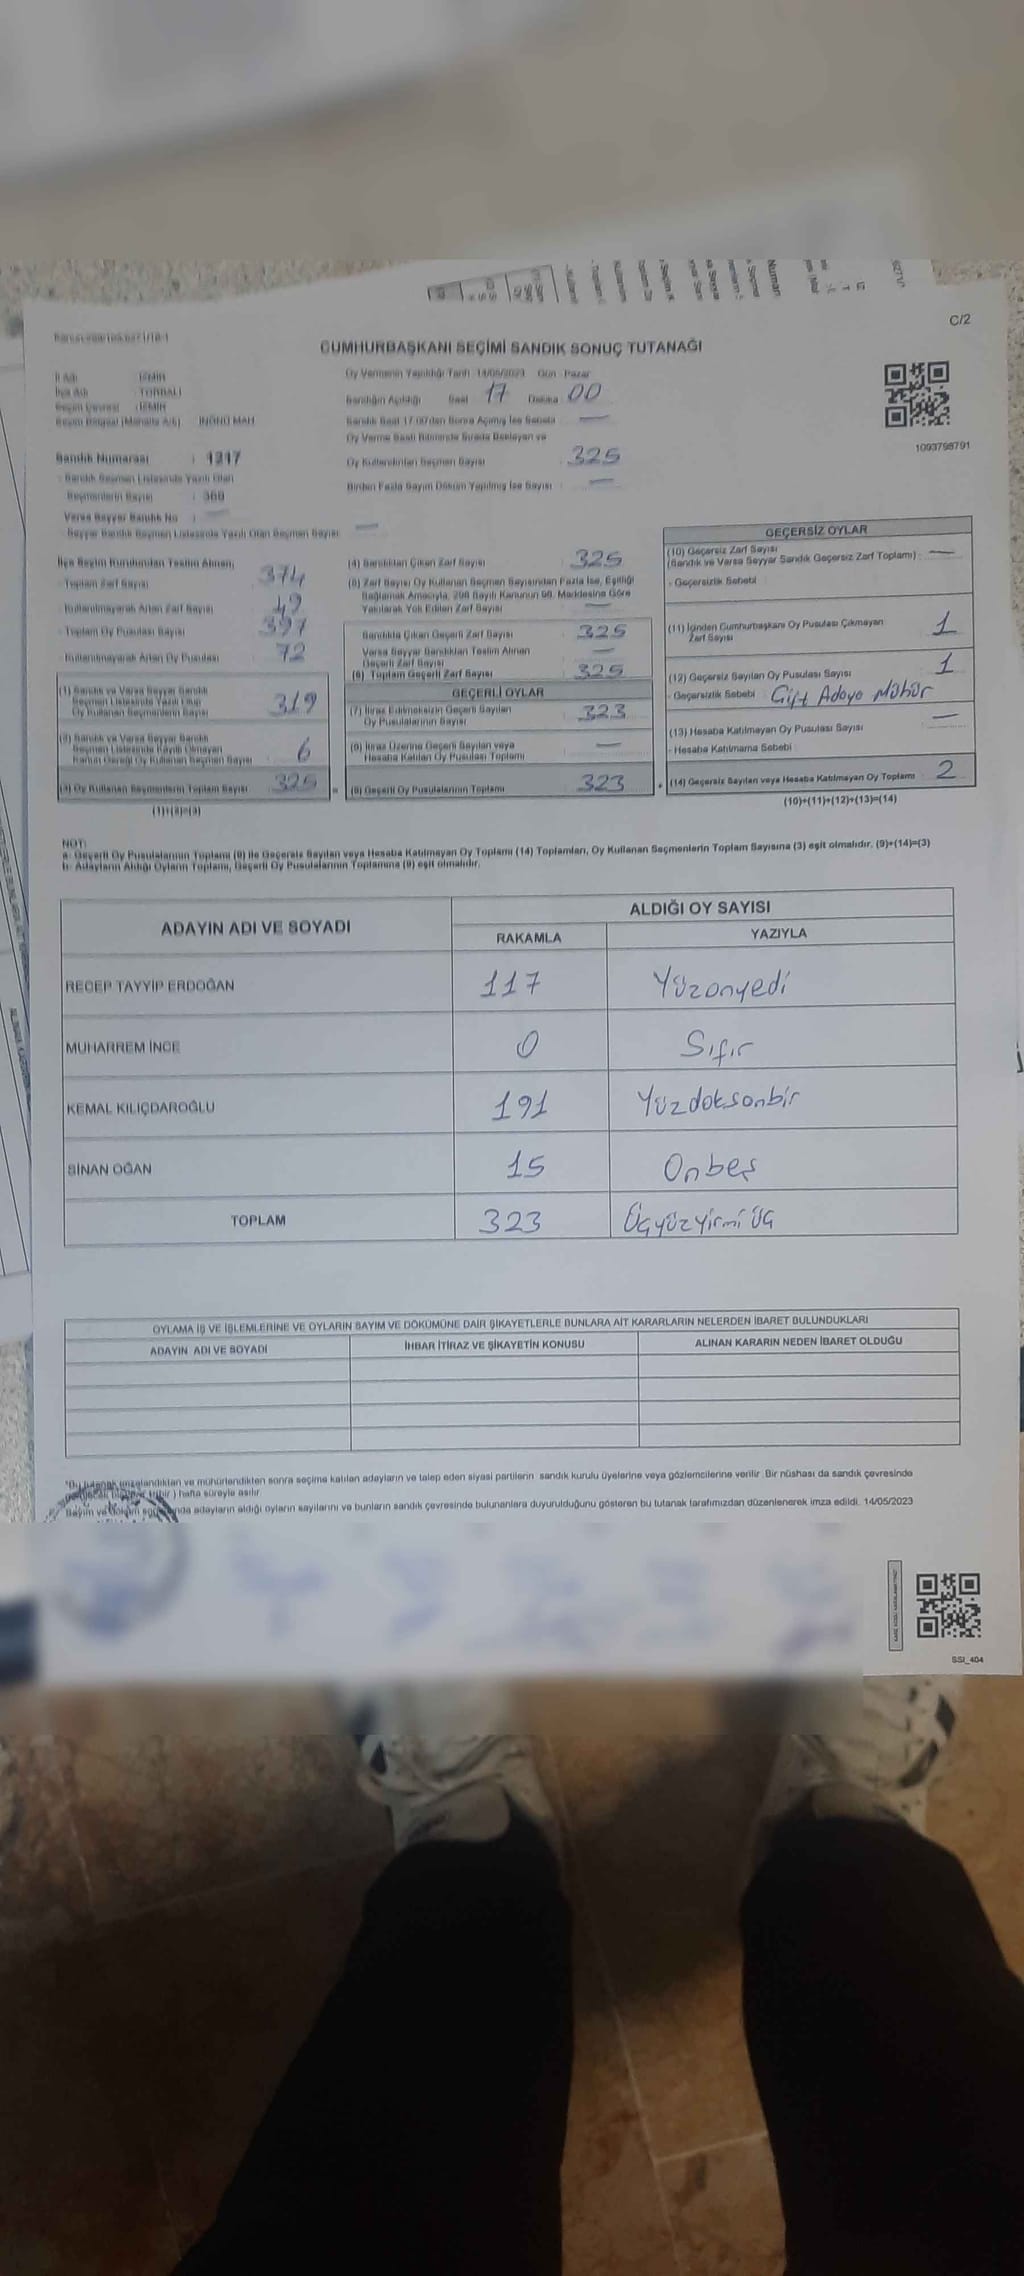 C/2
CUMHURBAŞKANI SEÇİMİ SANDIK SONUÇ TUTANAĞI
İl Adı : İZMİR
İlçe Adı : TORBALI
Seçim Çevresi : İZMİR
Seçim Bölgesi (Mahalle A/ş) : İNÖNÜ MAH
Oy Vermenin Yapıldığı Tarih : 14/05/2023 Gün : Pazar
Sandığın Açıldığı Saat 17 Dakika 00
Sandık Saat 17:00'den Sonra Açılmış İse Sebebi : —
Oy Verme Saati Bitiminde Sırada Bekleyen ve
Oy Kullandırılan Seçmen Sayısı : 325
Birden Fazla Sayım Döküm Yapılmış İse Sayısı : —
1093798791
Sandık Numarası : 1217
- Sandık Seçmen Listesinde Yazılı Olan
Seçmenlerin Sayısı : 369
Varsa Seyyar Sandık No : —
- Seyyar Sandık Seçmen Listesinde Yazılı Olan Seçmen Sayısı : —
İlçe Seçim Kurulundan Teslim Alınan;
- Toplam Zarf Sayısı : 374
- Kullanılmayarak Artan Zarf Sayısı : 49
- Toplam Oy Pusulası Sayısı : 397
- Kullanılmayarak Artan Oy Pusulası : 72
(1) Sandık ve Varsa Seyyar Sandık
Seçmen Listesinde Yazılı Olup
Oy Kullanan Seçmenlerin Sayısı : 319
(2) Sandık ve Varsa Seyyar Sandık
Seçmen Listesinde Kayıtlı Olmayan
Kanun Gereği Oy Kullanan Seçmen Sayısı : 6
(3) Oy Kullanan Seçmenlerin Toplam Sayısı : 325
(1)+(2)=(3)
(4) Sandıktan Çıkan Zarf Sayısı : 325
(5) Zarf Sayısı Oy Kullanan Seçmen Sayısından Fazla İse, Eşitliği
Sağlamak Amacıyla, 298 Sayılı Kanunun 98. Maddesine Göre
Yakılarak Yok Edilen Zarf Sayısı : —
Sandıkta Çıkan Geçerli Zarf Sayısı : 325
Varsa Seyyar Sandıktan Teslim Alınan
Geçerli Zarf Sayısı : —
(6) Toplam Geçerli Zarf Sayısı : 325
GEÇERLİ OYLAR
(7) İtiraz Edilmeksizin Geçerli Sayılan
Oy Pusulalarının Sayısı : 323
(8) İtiraz Üzerine Geçerli Sayılan veya
Hesaba Katılan Oy Pusulası Toplamı : —
(9) Geçerli Oy Pusulalarının Toplamı : 323
GEÇERSİZ OYLAR
(10) Geçersiz Zarf Sayısı
(Sandık ve Varsa Seyyar Sandık Geçersiz Zarf Toplamı) : —
- Geçersizlik Sebebi :
(11) İçinden Cumhurbaşkanı Oy Pusulası Çıkmayan
Zarf Sayısı : 1
(12) Geçersiz Sayılan Oy Pusulası Sayısı : 1
- Geçersizlik Sebebi : Çift Adaya Mühür
(13) Hesaba Katılmayan Oy Pusulası Sayısı : —
- Hesaba Katılmama Sebebi :
(14) Geçersiz Sayılan veya Hesaba Katılmayan Oy Toplamı : 2
(10)+(11)+(12)+(13)=(14)
NOT:
a- Geçerli Oy Pusulalarının Toplamı (9) ile Geçersiz Sayılan veya Hesaba Katılmayan Oy Toplamı (14) Toplamları, Oy Kullanan Seçmenlerin Toplam Sayısına (3) eşit olmalıdır. (9)+(14)=(3)
b- Adayların Aldığı Oyların Toplamı, Geçerli Oy Pusulalarının Toplamına (9) eşit olmalıdır.
ADAYIN ADI VE SOYADI ALDIĞI OY SAYISI
RAKAMLA YAZIYLA
RECEP TAYYİP ERDOĞAN 117 Yüzonyedi
MUHARREM İNCE 0 Sıfır
KEMAL KILIÇDAROĞLU 191 Yüzdoksanbir
SİNAN OĞAN 15 Onbeş
TOPLAM 323 Üçyüzyirmi üç
OYLAMA İŞ VE İŞLEMLERİNE VE OYLARIN SAYIM VE DÖKÜMÜNE DAİR ŞİKAYETLERLE BUNLARA AİT KARARLARIN NELERDEN İBARET BULUNDUKLARI
ADAYIN ADI VE SOYADI İHBAR İTİRAZ VE ŞİKAYETİN KONUSU ALINAN KARARIN NEDEN İBARET OLDUĞU
*Bu tutanak imzalandıktan ve mühürlendikten sonra seçime katılan adayların ve talep eden siyasi partilerin sandık kurulu üyelerine veya gözlemcilerine verilir. Bir nüshası da sandık çevresinde
hafta süreyle asılır.
Sayım ve döküm adayların aldığı oyların sayılarını ve bunların sandık çevresinde bulunanlara duyurulduğunu gösteren bu tutanak tarafımızdan düzenlenerek imza edildi. 14/05/2023
SSI_404